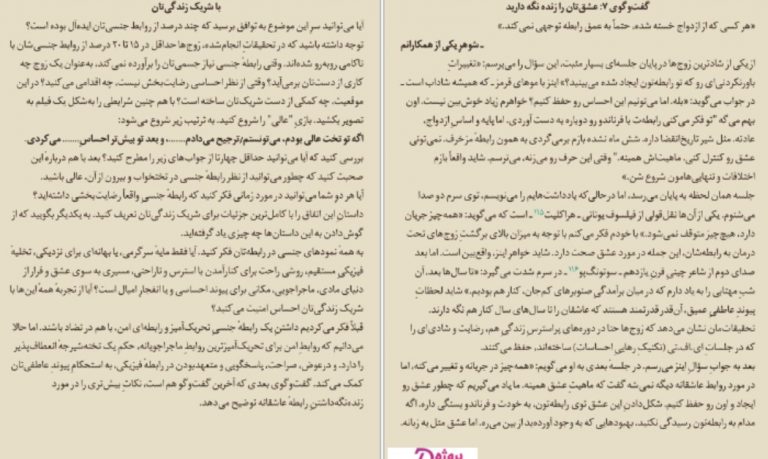 گفت‌وگوی ۷: عشق‌تان را زنده نگه دارید
«هر کسی که از ازدواج خسته شده، حتماً به عمق رابطه توجهی نمی‌کند.»
ـ شوهر یکی از همکارانم
از یکی از شادترین زوج‌ها در پایان جلسه‌ای بسیار مثبت، این سؤال را می‌پرسم: «تغییراتِ
باورنکردنی‌ای رو که تو رابطه‌تون ایجاد شده می‌بینید؟» اینز با موهای قرمز ـ که همیشه شاداب است ـ
در جواب می‌گوید: «بله. اما می‌تونیم این احساس رو حفظ کنیم؟ خواهرم زیاد خوش‌بین نیست. اون
بهم می‌گه ”تو فکر می‌کنی رابطه‌ت با فرناندو رو دوباره به دست آوردی. اما پایه و اساسِ ازدواج،
عادته. مثل شیر تاریخ‌انقضا داره. شش ماه نشده بازم برمی‌گردی به همون رابطهٔ مزخرف. نمی‌تونی
عشق رو کنترل کنی. ماهیت‌اش همینه.“ وقتی این حرف رو می‌زنه، می‌ترسم. شاید واقعاً بازم
اختلافات و تنهایی‌هامون شروع شن.»
جلسه همان لحظه به پایان می‌رسد، اما در حالی‌که یادداشت‌هایم را می‌نویسم، توی سرم دو صدا
می‌شنوم. یکی از آن‌ها نقل‌قولی از فیلسوف یونانی ـ هراکلیت۱۱۵ ـ است که می‌گوید: «همه‌چیز جریان
دارد، هیچ‌چیز متوقف نمی‌شود.» با خودم فکر می‌کنم با توجه به میزان بالای برگشتِ زوج‌های تحت
درمان به رابطه‌شان، این جمله در مورد عشق صحت دارد. شاید خواهرِ اینز، واقع‌بین است. اما بعد
صدای دوم از شاعر چینی قرن یازدهم ـ سوتونگ‌پو۱۱۶ ـ در سرم شدت می‌گیرد: «تا سال‌ها بعد، آن
شبِ مهتابی را به یاد دارم که در میان برآمدگیِ صنوبرهای کم‌جان، کنار هم بودیم.» شاید لحظاتِ
پیوندِ عاطفیِ عمیق، آن‌قدر قدرتمند هستند که عاشقان را تا سال‌های سال کنار هم نگه دارند.
تحقیقات‌مان نشان می‌دهد که زوج‌ها حتا در دوره‌های پراسترس زندگی هم، رضایت و شادی‌ای را
که در جلساتِ ای.اف.تی (تکنیکِ رهاییِ احساسات) ساخته‌اند، حفظ می‌کنند.
بعد به جوابِ سؤالِ اینز می‌رسم. در جلسهٔ بعدی به او می‌گویم: «همه‌چیز در جریانه و تغییر می‌کنه، اما
در مورد روابط عاشقانه دیگه نمی‌شه گفت که ماهیتِ عشق همینه. ما یاد می‌گیریم که چطور عشق رو
ایجاد و اون رو حفظ کنیم. شکل‌دادنِ این عشق توی رابطه‌تون، به خودت و فرناندو بستگی داره. اگه
مدام به رابطه‌تون رسیدگی نکنید، بهبودهایی که به وجود آورده‌ید از بین می‌ره. اما عشق مثل یه زبانه.
با شریک زندگی‌تان
آیا می‌توانید سرِ این موضوع به توافق برسید که چند درصد از روابط جنسی‌تان ایده‌آل بوده است؟
توجه داشته باشید که در تحقیقاتِ انجام‌شده، زوج‌ها حداقل در ۱۵ تا ۲۰ درصد از روابط جنسی‌شان با
ناکامی روبه‌رو شده‌اند. وقتی رابطهٔ جنسی نیاز جسمی‌تان را برآورده نمی‌کند، به‌عنوان یک زوج چه
کاری از دست‌تان برمی‌آید؟ وقتی از نظر احساسی رضایت‌بخش نیست، چه اقدامی می‌کنید؟ در این
موقعیت، چه کمکی از دست شریک‌تان ساخته است؟ با هم چنین شرایطی را به‌شکل یک فیلم به
تصویر بکشید. بازیِ "عالی" را شروع کنید. به ترتیب زیر شروع می‌شود:
اگه تو تخت عالی بودم، می‌تونستم/ ترجیح می‌دادم....... و بعد تو بیش‌تر احساسِ .......... می‌کردی.
بررسی کنید که آیا می‌توانید حداقل چهارتا از جواب‌های زیر را مطرح کنید؟ بعد با هم دربارهٔ این
صحبت کنید که چطور می‌توانید از نظر رابطهٔ جنسی در تختخواب و بیرون از آن، عالی باشید.
آیا هر دوِ شما می‌توانید در مورد زمانی فکر کنید که رابطهٔ جنسی واقعاً رضایت‌بخشی داشته‌اید؟
داستانِ این اتفاق را با کامل‌ترین جزئیات برای شریک زندگی‌تان تعریف کنید. به یکدیگر بگویید که از
گوش‌دادن به این داستان‌ها چه چیزی یاد گرفته‌اید.
به همهٔ نمودهای جنسی در رابطه‌تان فکر کنید. آیا فقط مایهٔ سرگرمی، یا بهانه‌ای برای نزدیکی، تخلیهٔ
فیزیکی مستقیم، روشی راحت برای کنارآمدن با استرس و ناراحتی، مسیری به سوی عشق و فرار از
دنیای مادی، ماجراجویی، مکانی برای پیوند احساسی و یا انفجارِ امیال است؟ آیا از تجربهٔ همهٔ این‌ها با
شریک زندگی‌تان احساس امنیت می‌کنید؟
قبلاً فکر می‌کردیم داشتنِ یک رابطهٔ جنسیِ تحریک‌آمیز و رابطه‌ای امن، با هم در تضاد باشند. اما حالا
می‌دانیم که روابطِ امن برای تحریک‌آمیزترین روابطِ ماجراجویانه، حکم یک تخته‌شیرجهٔ انعطاف‌پذیر
را دارد. و درعوض، صراحت، پاسخگویی و متعهدبودن در رابطهٔ فیزیکی، به استحکام پیوندِ عاطفی‌تان
کمک می‌کند. گفت‌وگوی بعدی که آخرین گفت‌وگو هم است، نکاتِ بیش‌تری را در مورد
زنده‌نگه‌داشتنِ رابطهٔ عاشقانه توضیح می‌دهد.